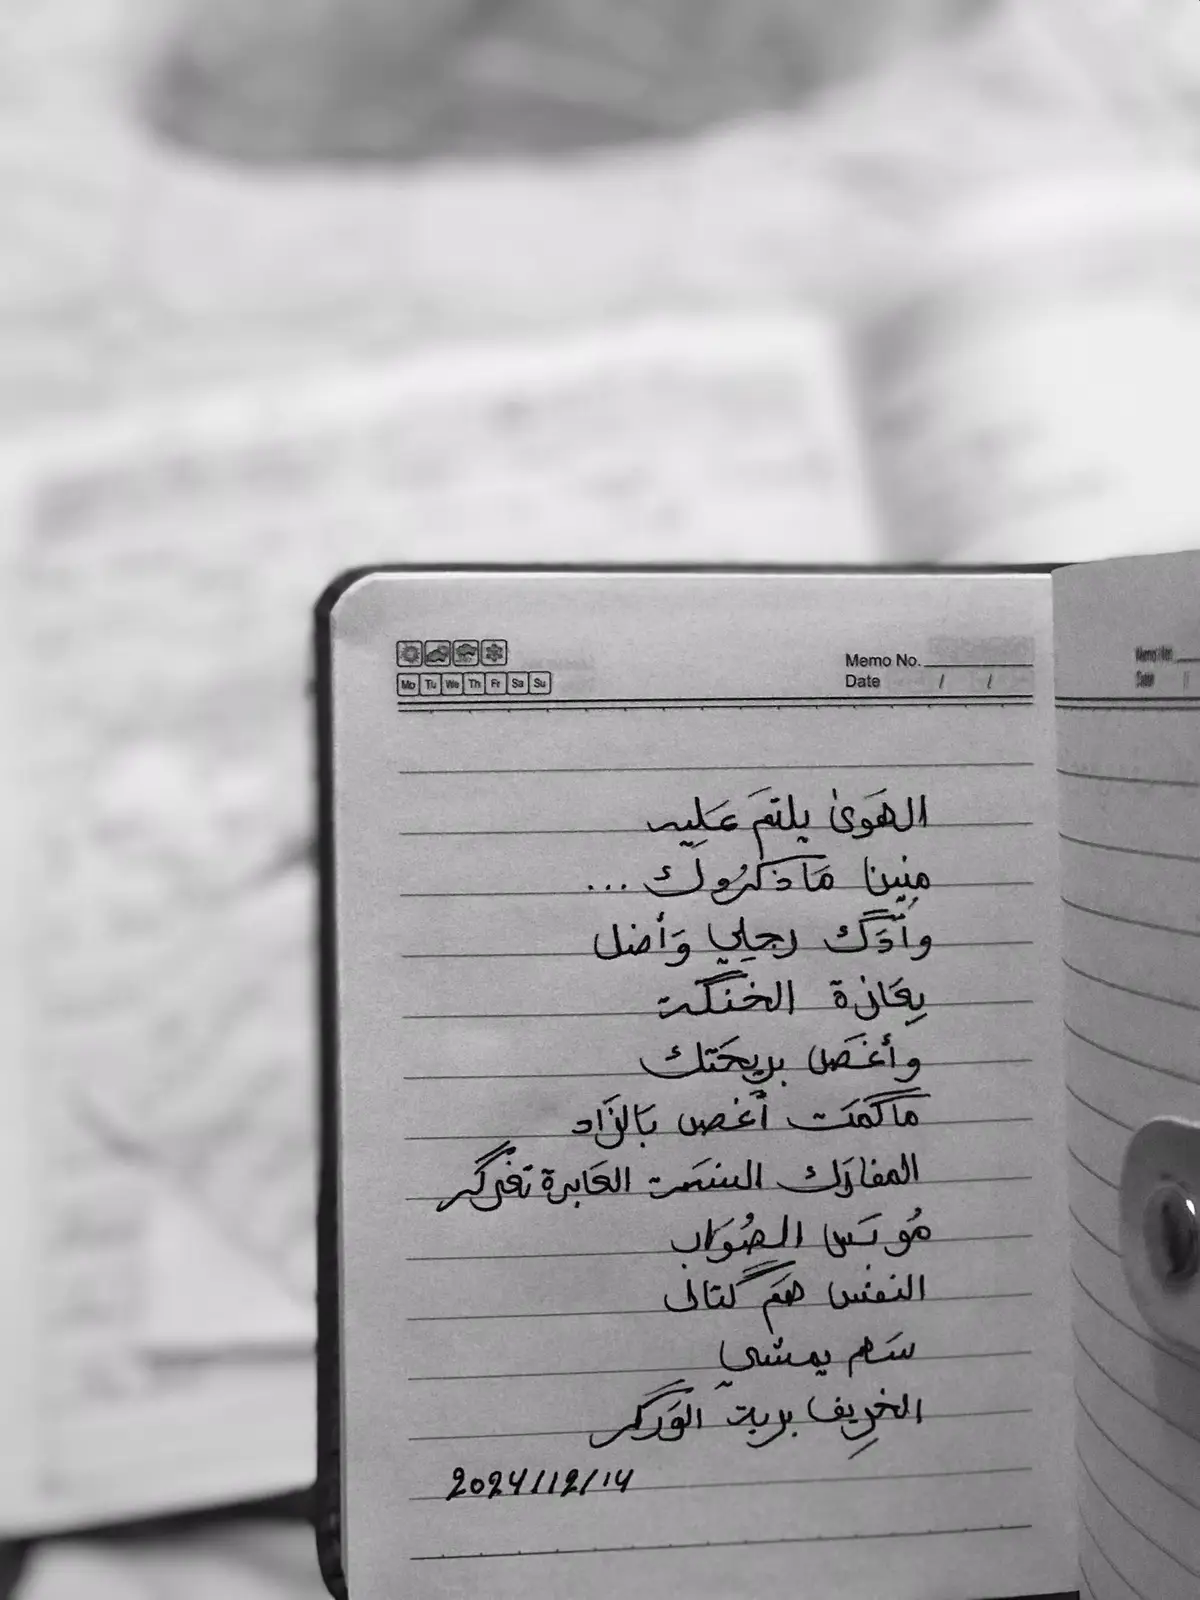 Mo Tu We Th Fr Sa Su
Memo No.
Date / /
الهَوىٰ يلتَم عَليه
مِنينا مَاذكرُوك ...
وأَدَگ رجلِي وَأضل
بِعَازة الخَنگة
وأغَصَ بريحَتك
ماگمَت أغص بَالزَاد
المفارَك السَمت العَابرة تفرگ
مُو بَس الصُوَاب
النفَس هَم گتال
سَهم يمشي
الخرِيف بربتَ الوَرگ
2024/12/14